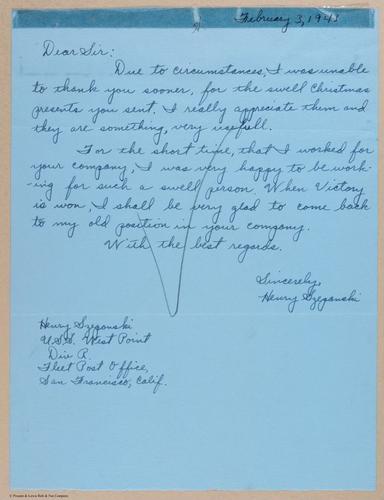 February 3, 1943
Dear Sir:
Due to circumstances, I was unable
to thank you sooner, for the swell Christmas
presents you sent. I really appreciate them and
they are something, very usefull.
For the short time, that I worked for
your company, I was very happy to be work-
ing for such a swell person. When Victory
is won, I shall be very glad to come back
to my old position in your company.
With the best regards.
Sincerely,
Henry Szeganski
Henry Szeganski
U.S.S. West Point
Div R.
Fleet Post Office,
San Francisco, Calif.